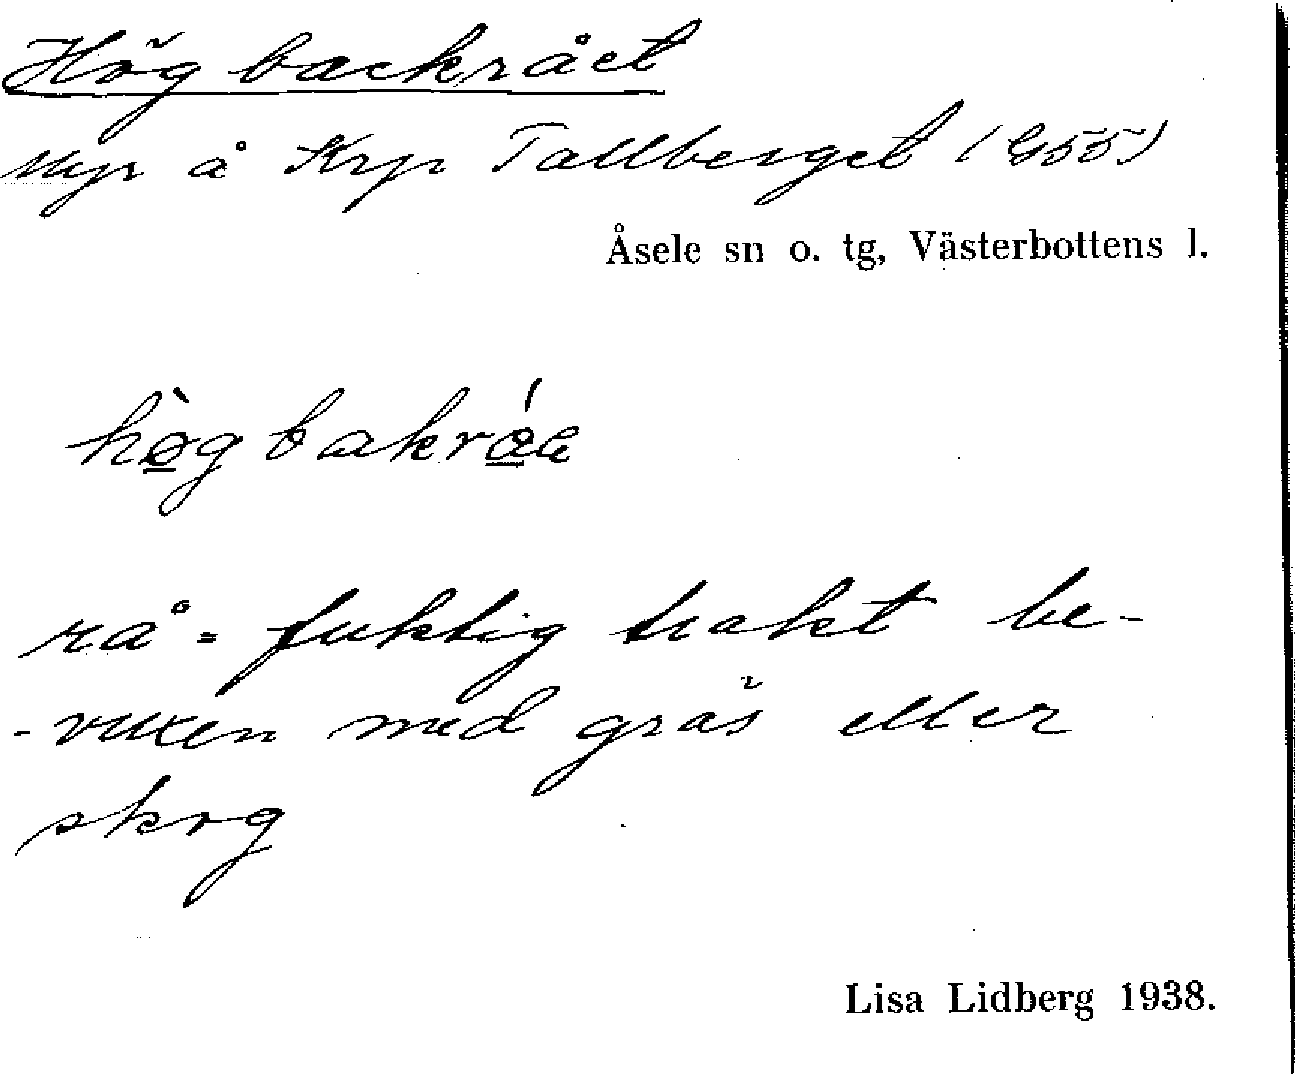 Högbackrået
Myr å Krp Tallberget (G55)
Åsele sn o. tg, Västerbottens l.
hò̱gbakrǽ̱a
rå = fuktig trakt be-
-vuxen med gräs eller
skog
Lisa Lidberg 1938.